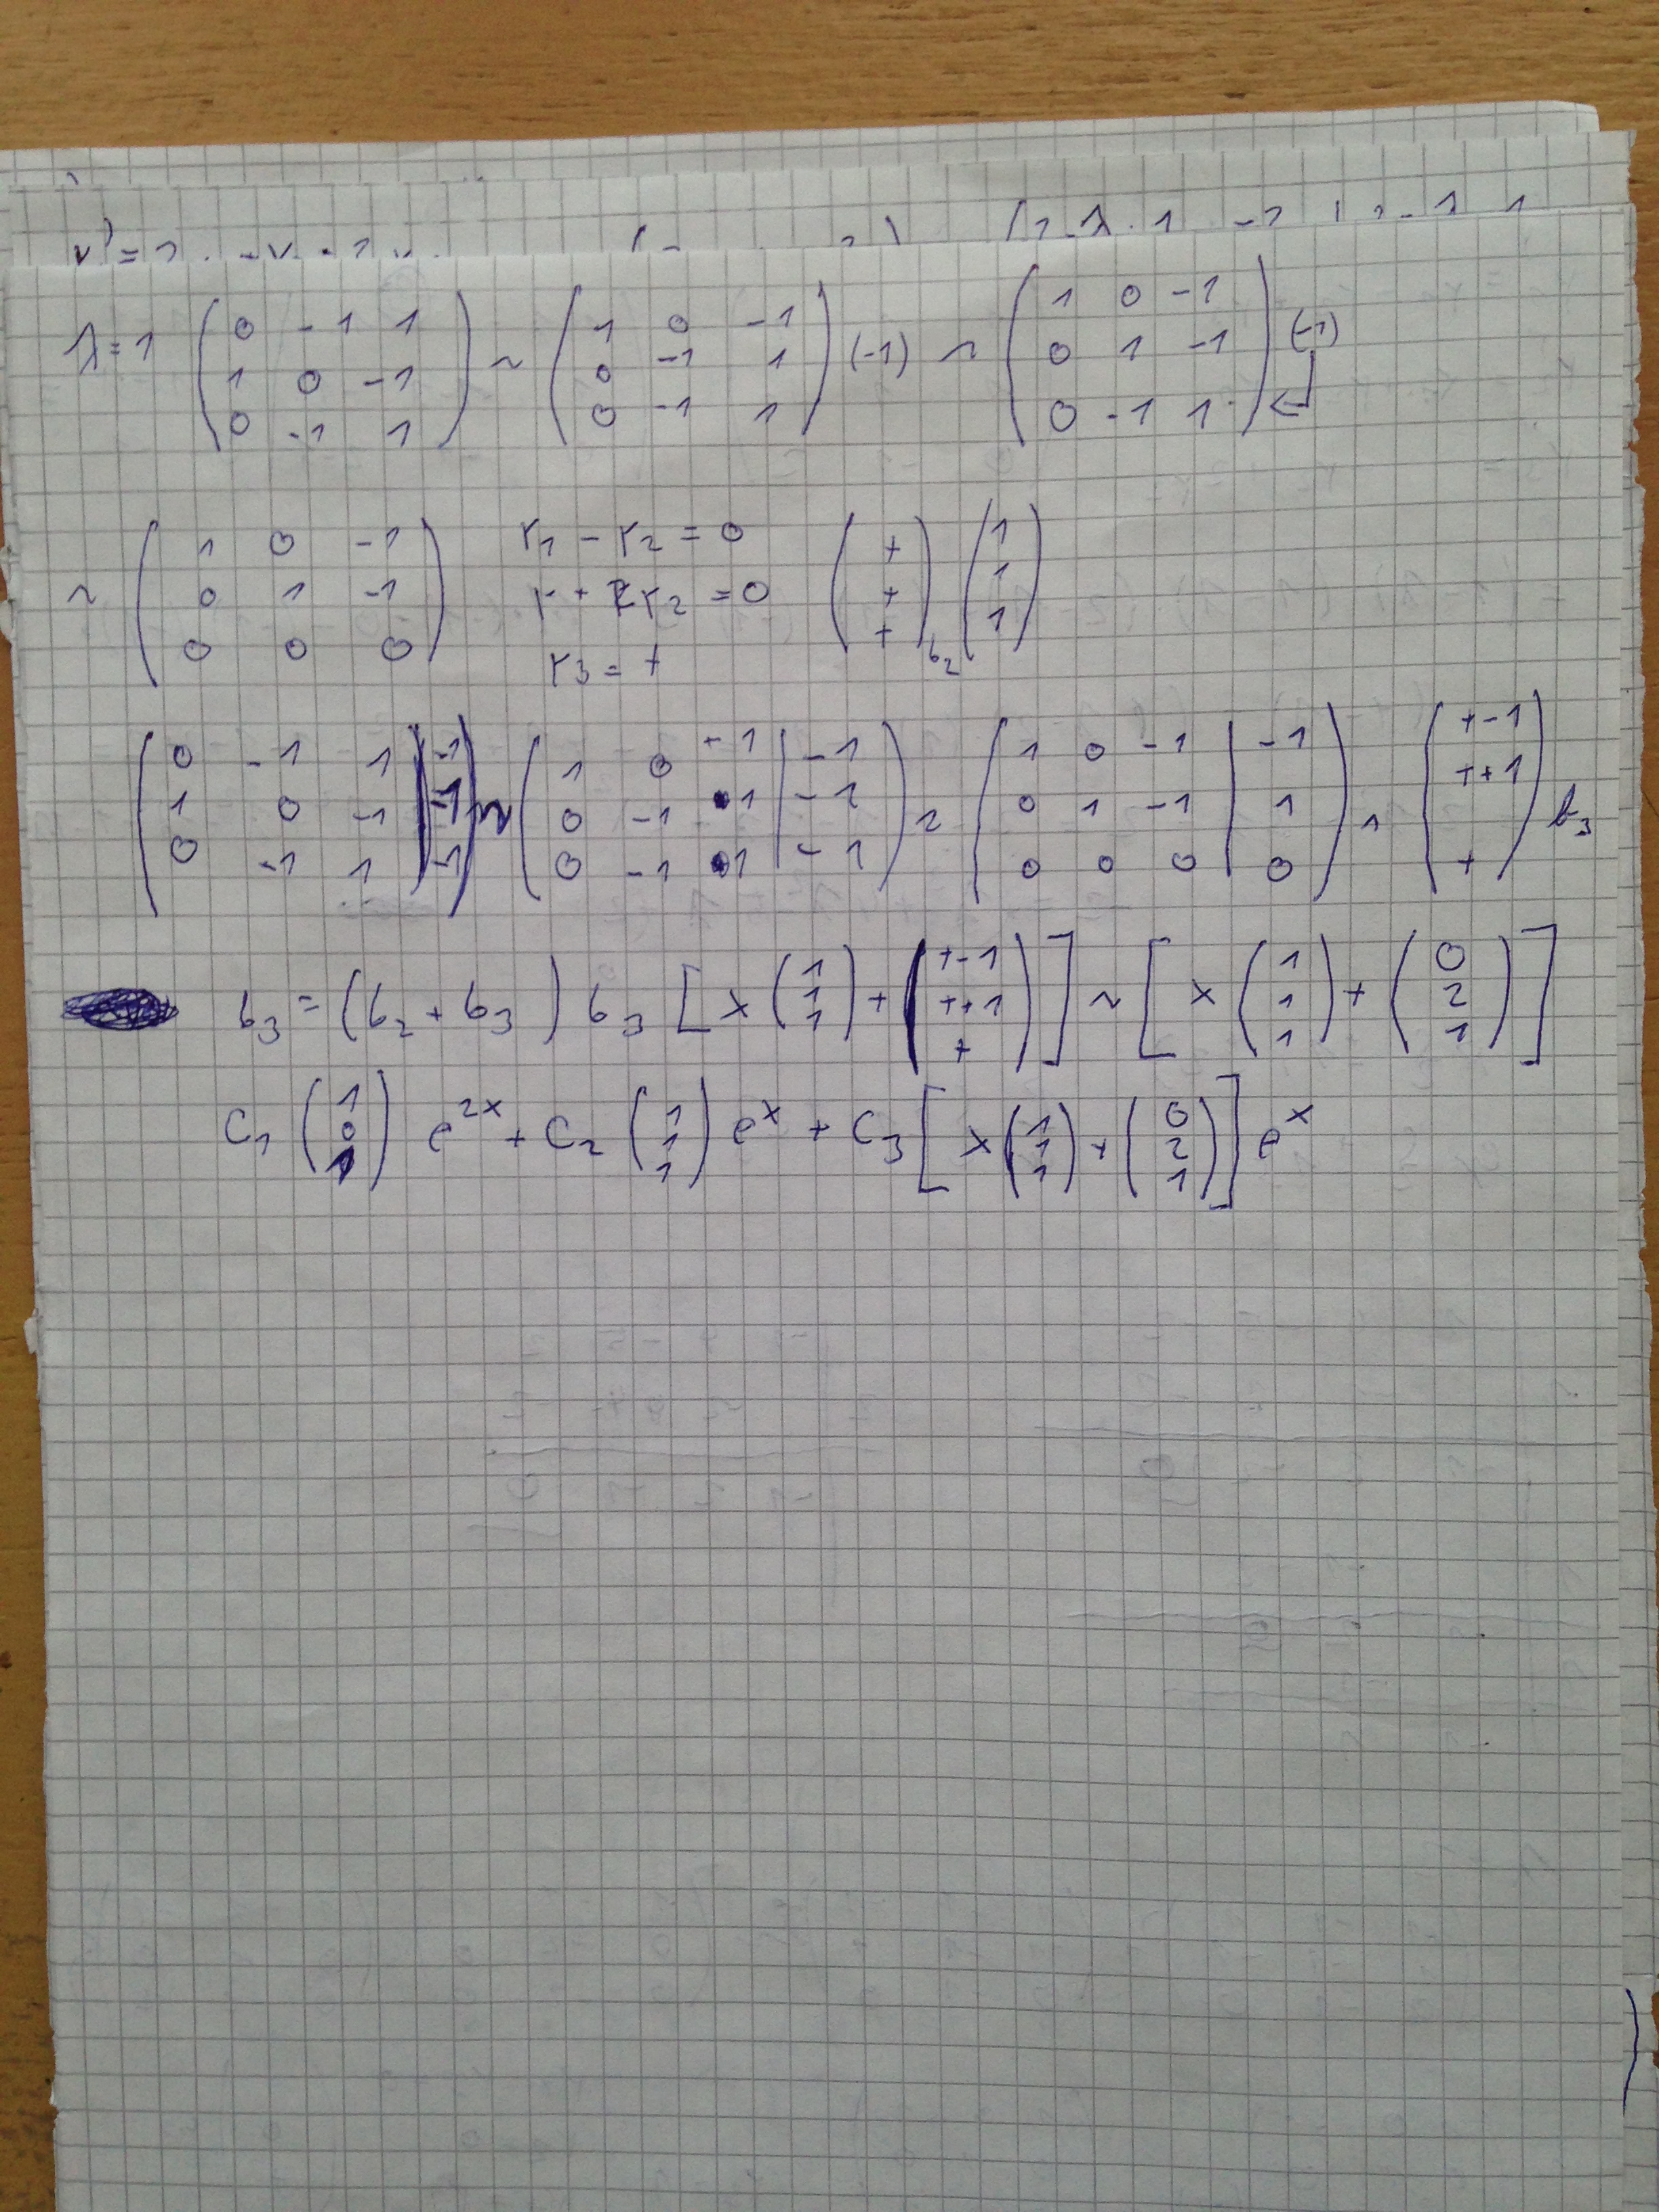 λ=1 (0 -1 1 ; 1 0 -1 ; 0 -1 1) ~ (1 0 -1 ; 0 -1 1 ; 0 -1 1) (-1) ~ (1 0 -1 ; 0 1 -1 ; 0 -1 1) (-1) ↵
~ (1 0 -1 ; 0 1 -1 ; 0 0 0) r1 - r2 = 0 (t ; t ; t) b2 (1 ; 1 ; 1)
r2 = 0
r3 = t
(0 -1 1 | -1 ; 1 0 -1 | -1 ; 0 -1 1 | -1) ~ (1 0 -1 | -1 ; 0 -1 1 | -1 ; 0 -1 1 | -1) ~ (1 0 -1 | -1 ; 0 1 -1 | 1 ; 0 0 0 | 0) ~ (t-1 ; t+1 ; t) b3
b3 = (b2 + b3) b3 [x (1 ; 1 ; 1) + (t-1 ; t+1 ; t)] ~ [x (1 ; 1 ; 1) + (0 ; 2 ; 1)]
C1 (1 ; 0 ; 1) e^2x + C2 (1 ; 1 ; 1) e^x + C3 [x (1 ; 1 ; 1) + (0 ; 2 ; 1)] e^x